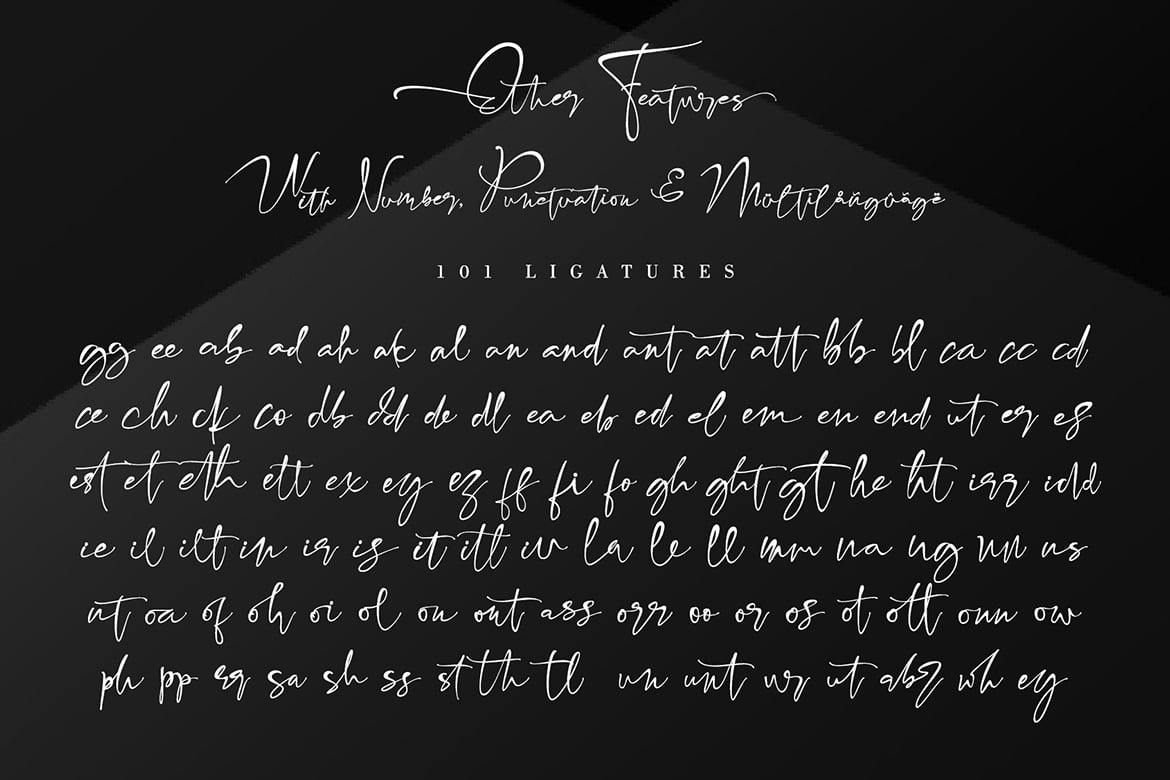 Other Features
With Number, Punctuation & Mültilåñgûägë
101 LIGATURES
gg ee ab ad ah ak al an and ant at att bb bl ca cc cd
ce ch ck co db dd de dl ea eb ed el em en end ut er es
est et eth ett ex ey ez ff fi fo gh ght gt he ht irr idd
ie il ilt in ir is it itt iv la le ll mm na ng nn ns
nt oa of oh oi ol on ont ass orr oo or os ot ott oun ow
ph pp rr sa sh ss st th tl un unt ur ut abr wh ey